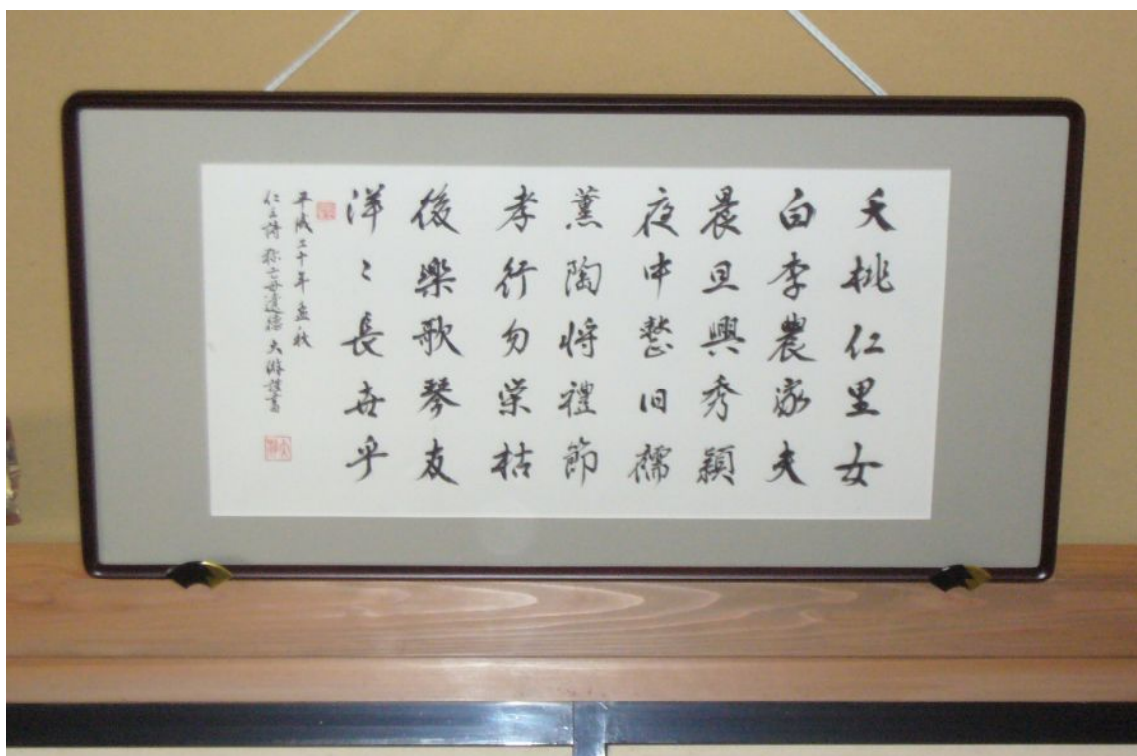 夭桃仁里女
白李農家夫
晨旦興秀穎
夜中愁旧襦
薫陶将禮節
孝行勿栄枯
後樂歌琴友
洋〻長世乎
平成二十年 孟秋
仁之詩 称亡母遺徳 大游謹書